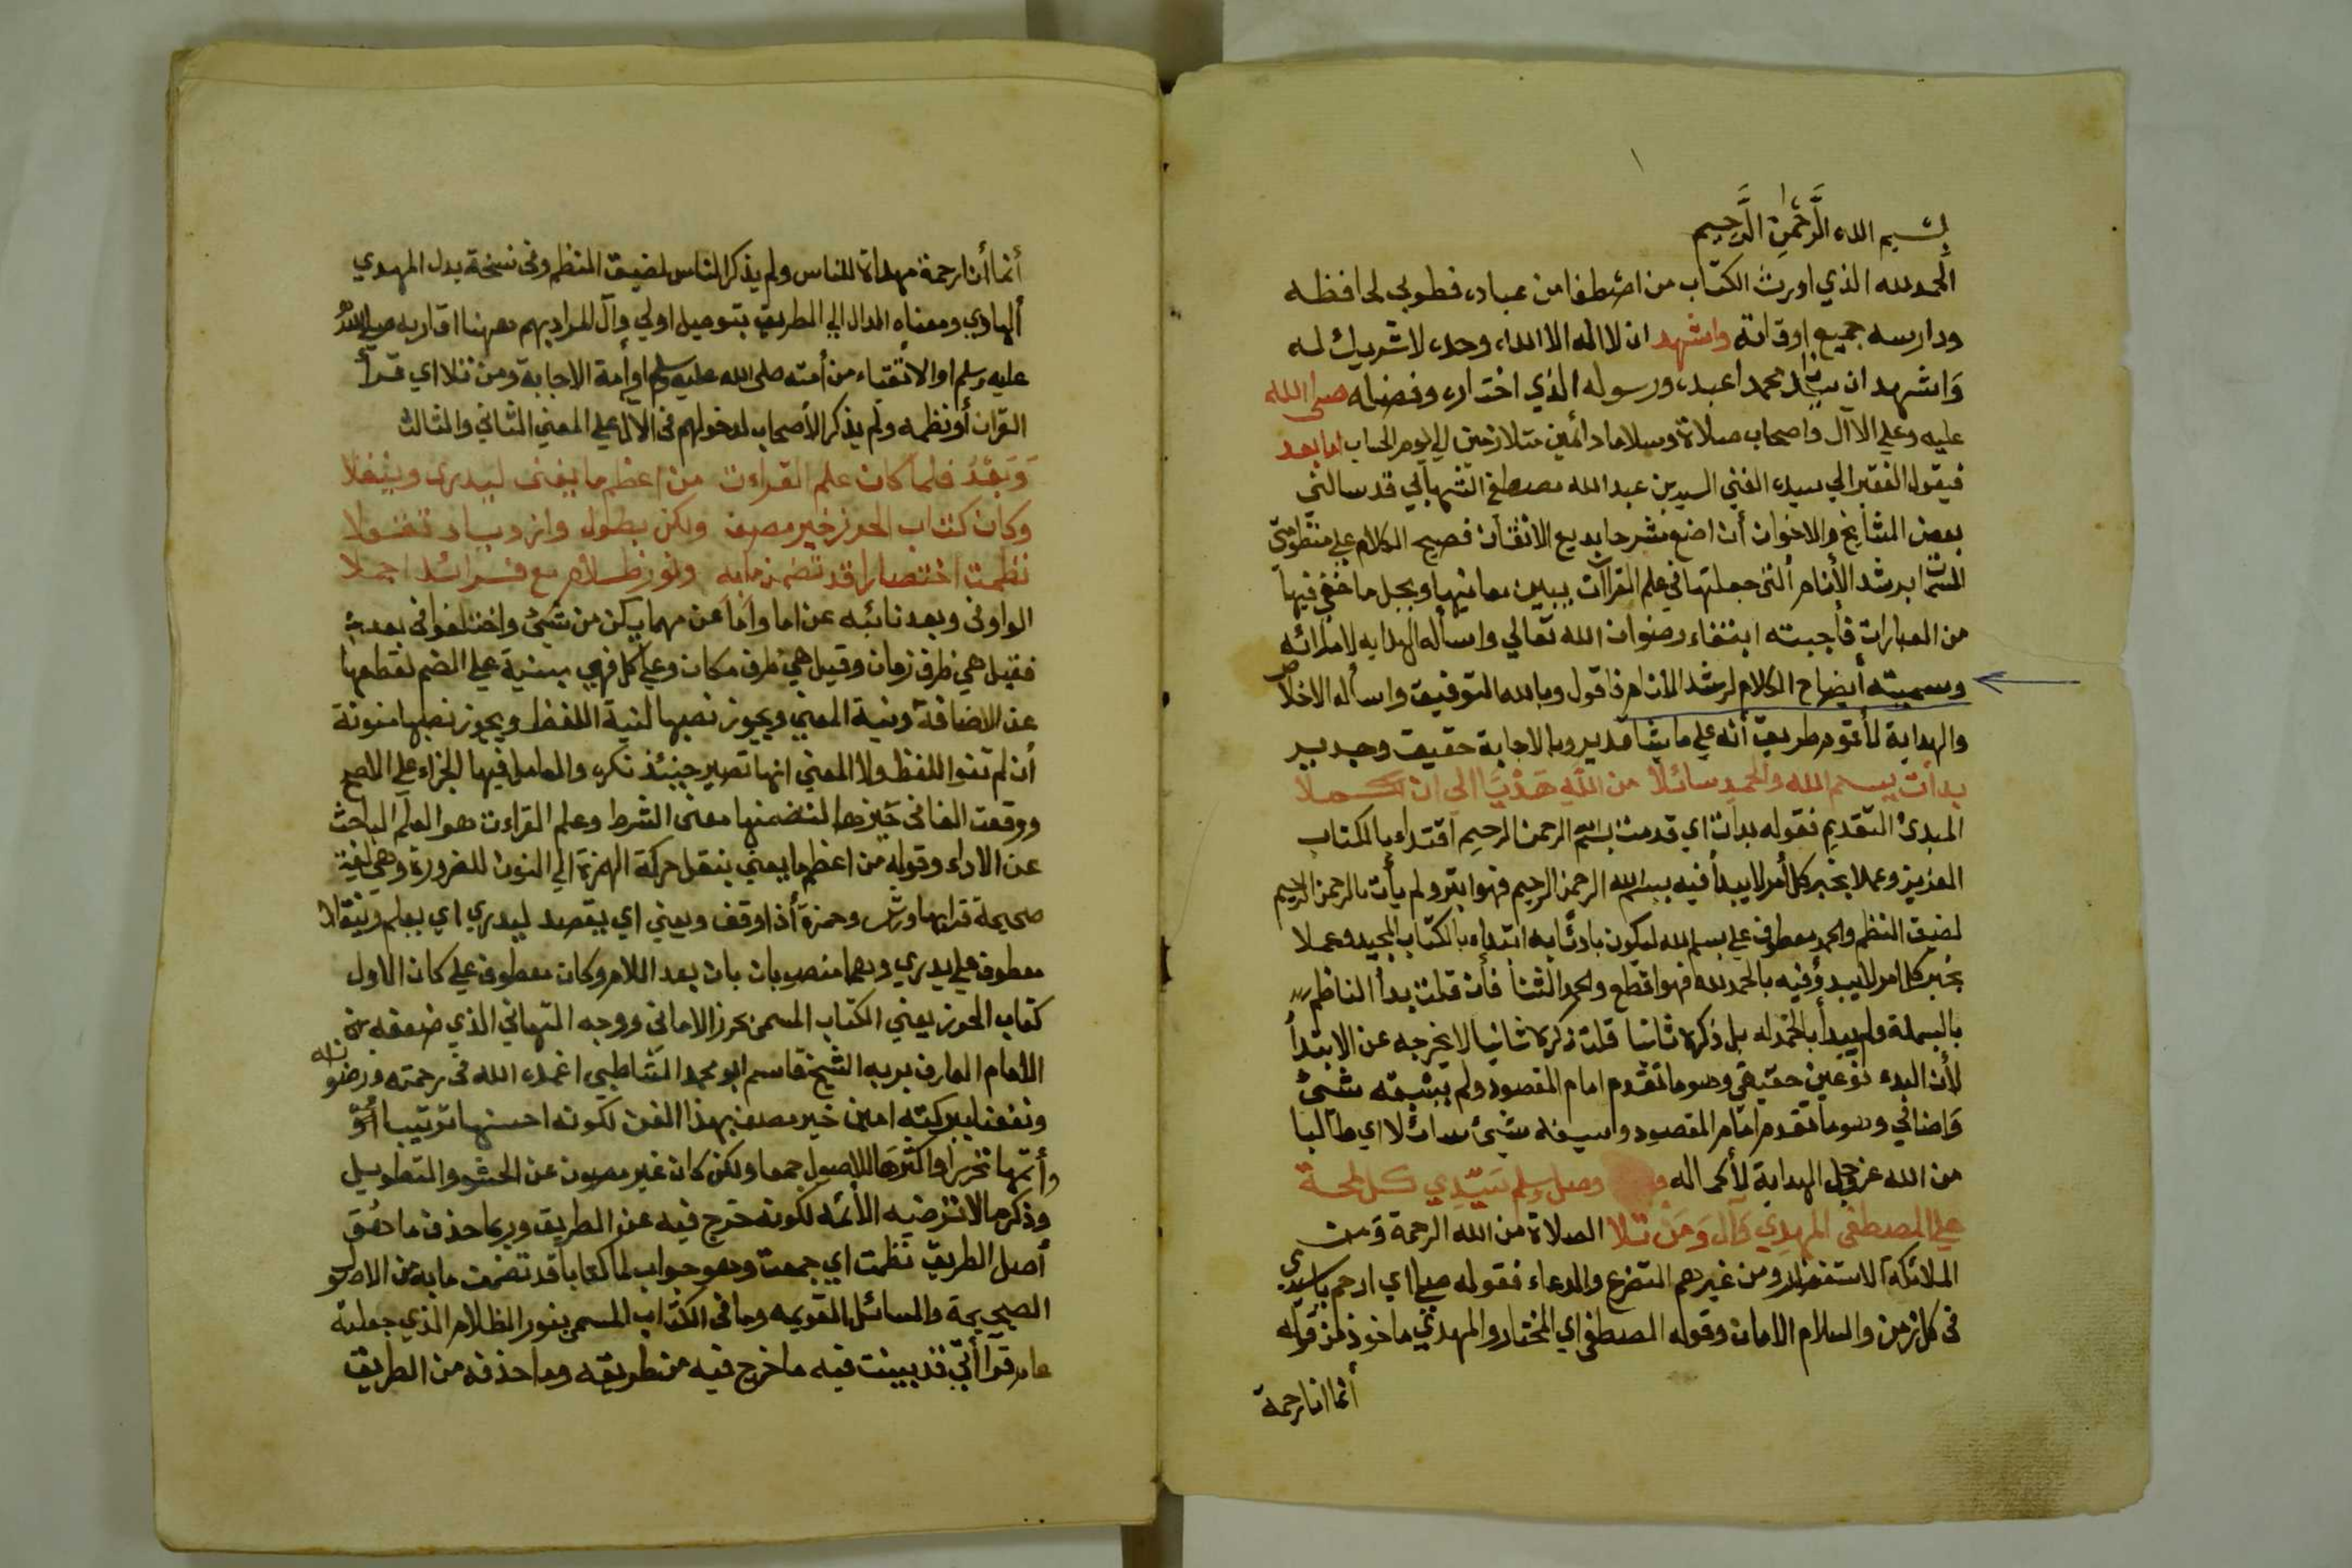 بسم الله الرحمن الرحيم
الحمد لله الذي اورث الكتاب من اصطفا من عباده فطوبى لحافظه
ودارسه جميع اوقاته واشهد ان لا اله الا الله وحده لا شريك له
وَاشهد ان سيدنا محمدا عبده ورسوله الذي اختاره وفضله صلى الله
عليه وعلي الاآل واصحاب صلاة وسلاما دائمين متلازمين الي يوم الحساب اما بعد
فيقول الفقير الي سيده الغني السيد بن عبد الله مصطفى قد سالني
بعض المشايخ والاخوان أن اضع شرحا بديع الاتقان فصيح الكلام علي منظومتي
المسمات برشد الأنام ألتي جعلتها في علم القراآت يبين معانيها ويجل ما خفي فيها
من العبارات فأجبته ابتغاء رضوان الله تعالي واسأله الهدايه لامدائه
وسميته أيضاح الكلام لرشد الأنام فاقول وبالله التوفيق واسأله الاخلاص
والهداية لأقوم طريق أنه علي ما يشا قدير وبالاجابة حقيق وجدير
بدأت ببسم الله والحمد سائلا من الله هَدْيًا الى ان
المبدئ التقديم فقوله بدات اي قدمت بسم الله الرحمن الرحيم اقتداء بالكتاب
العزيز وعملا بخبر كل أمر لا يبدأ فيه ببسم الله الرحمن الرحيم فهو ابتر ولم يأت بالرحمن الرحيم
لضيق النظم والحمد معطوف علي بسم الله ليكون بادئا به ابتداء بالكتاب المجيد وعملا
بخبر كل امر لا يبدؤ فيه بالحمد لله فهو اقطع والحمد الثنا فأن قلت بدأ الناظم
بالبسملة ولم يبدأ بالحمد له بل ذكره ثانيا قلت ذكره ثانيا لا يخرجه عن الابتدأ
لأن البدء نوعين حقيقي وهو ما تقدم امام المقصود ولم يسبقه شيئ
وَاضافي وهو ما تقدم امام المقصود وان سبقه شيئ سائلا اي طالبا
من الله عز وجل الهداية لأكماله وصل وسلم سَيّدِي كل لمحة
علي المصطفى المهدِي وَآل وَمَنْ تلا الصلاة من الله الرحمة وَمن
الملائكة الاستغفار ومن غيرهم التضرع والدعاء فقوله صل اي ارحم ياسيدي
فى كل زمن والسلام الامان وقوله المصطفى اي المختار والمهدي ماخوذ من قوله
أنما انا رحمة
أنما أنا رحمة مهداة للناس ولم يذكر الناس لضيق النظم وفى نسخة بدل المهدي
ألهادي ومعناه الدال الي الطريق بتوصيل اولي وآل المراد بهم ههنا اقاربه صلى الله
عليه وسلم او الاتقياء من أمته صلى الله عليه وسلم او أمة الاجابة ومن تلا اي قرأ
القران أو نظمه ولم يذكر الأصحاب لدخولهم فى الآل علي المعنى الثاني والثالث
وَبَعْدُ فلما كان علم القراءت من اعظم ما يعنى ليدرى وينقلا
وكان كتاب الحرز خير مصنف ولكن بطول وازدياد
نظمت اختصارا قد تضمن مابه ونور ظلام مع فرائد اجملا
الواو فى وبعد نائبه عن اما وأمَا عن مهما يكن من شئ واختلفوا فى بعد
فقيل هي ظرف زمان وقيل هي ظرف مكان وعلي كل فهي مبنية علي الضم لقطعها
عن الاضافة ونية المعني ويجوز نصبها لنية اللفظ ويجوز نصبها منونة
أن لم تنوا اللفظ ولا المعني انها تصير حينئذ نكره والعامل فيها الجزاء علي الاصح
ووقعت الفا فى خبرها لتضمنها معنى الشرط وعلم القراءت هو العلم الباحث
عن الاداء وقوله من اعظم ما يعني بنقل حركة الهمزة الي النون للضرورة وهي لغة
صحيحة قرابها ورش وحمزة أذا وقف ويعني اي يقصد ليدري اي يعلم وينقلا
معطوف علي يدري وهما منصوبان بان بعد اللام وكان معطوف علي كان الاول
كتاب الحرز يعني الكتاب المسمى بحرز الاماني ووجه التهاني الذي صنفه
الأمام العارف بربه الشيخ قاسم ابو محمد الشاطبي اغمده الله فى رحمته ورضوانه
ونفعنا ببركته امين خير مصنف بهذا الفن لكونه احسنها ترتيبا
وأتمها تحريرا واكثرها للاصول جمعا ولكن كان غير مصون عن الحشو والتطويل
وذكر ما لا ترضيه الأئمه لكونه خرج فيه عن الطريق وربما حذف ما حقق
أصل الطريق نظمت اي جمعت وهو جواب لما كتابا قد تضمنت مابه من الاصول
الصحيحة والمسائل القويمه وما فى الكتاب المسمى بنور الظلام الذي جعلته
قد بينت فيه ما خرج فيه من طريقه وما حذف من الطريق